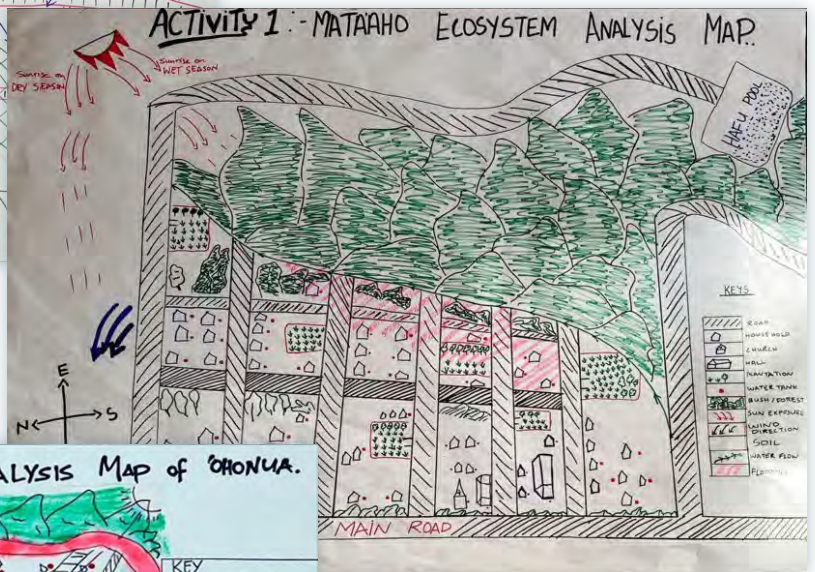 ACTIVITY 1 :- MATAAHO ECOSYSTEM ANALYSIS MAP.
Sunrise on
WET SEASON
Sunrise on
DRY SEASON
HAFU POOL
KEYS
ROAD
HOUSEHOLD
CHURCH
HALL
WATER TANK
BUSH/FOREST
SUN EXPOSURE
WIND
DIRECTION
SOIL
WATER FLOW
E
N
S
MAIN ROAD
ALYSIS MAP of 'OHONUA.
KEY